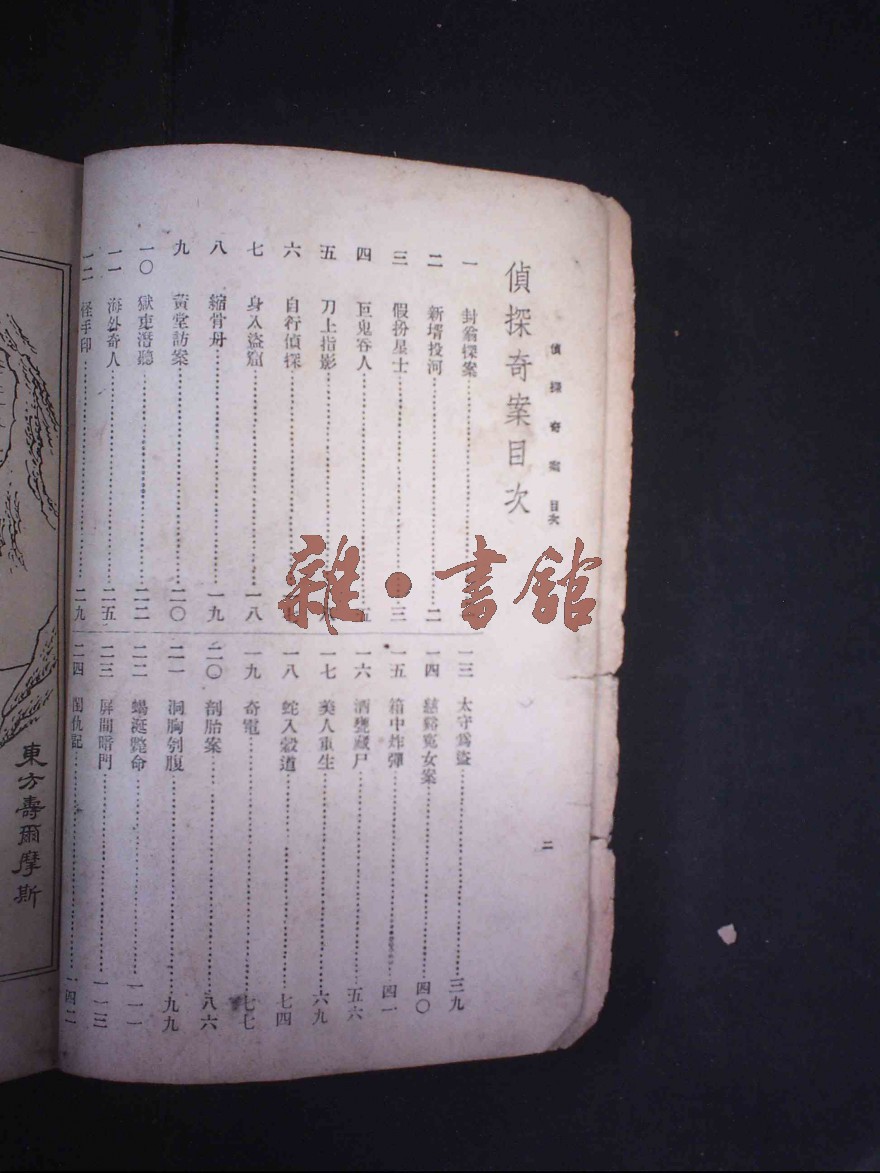 偵探奇案目次
偵探奇案目次
一 封翁探案
二 新壻投河 二
三 假扮星士 三
四 巨鬼吞人 五
五 刀上指影
六 自行偵探
七 身入盜窟 一八
八 縮骨丹 一九
九 黃堂訪案 二〇
一〇 獄吏潛聽 二二
一一 海外奇人 二五
一二 怪手印 二九
一三 太守爲盜 三九
一四 慈谿冤女案 四〇
一五 箱中炸彈 四一
一六 酒甕藏尸 五六
一七 美人重生 六九
一八 蛇入穀道 七四
一九 奇電 七七
二〇 剖胎案 八六
二一 洞胸刳腹 九九
二二 蝎涎斃命 一一一
二三 屏開暗門 一一三
二四 閨仇記 一四二
二
東方壽爾摩斯
雜·書館